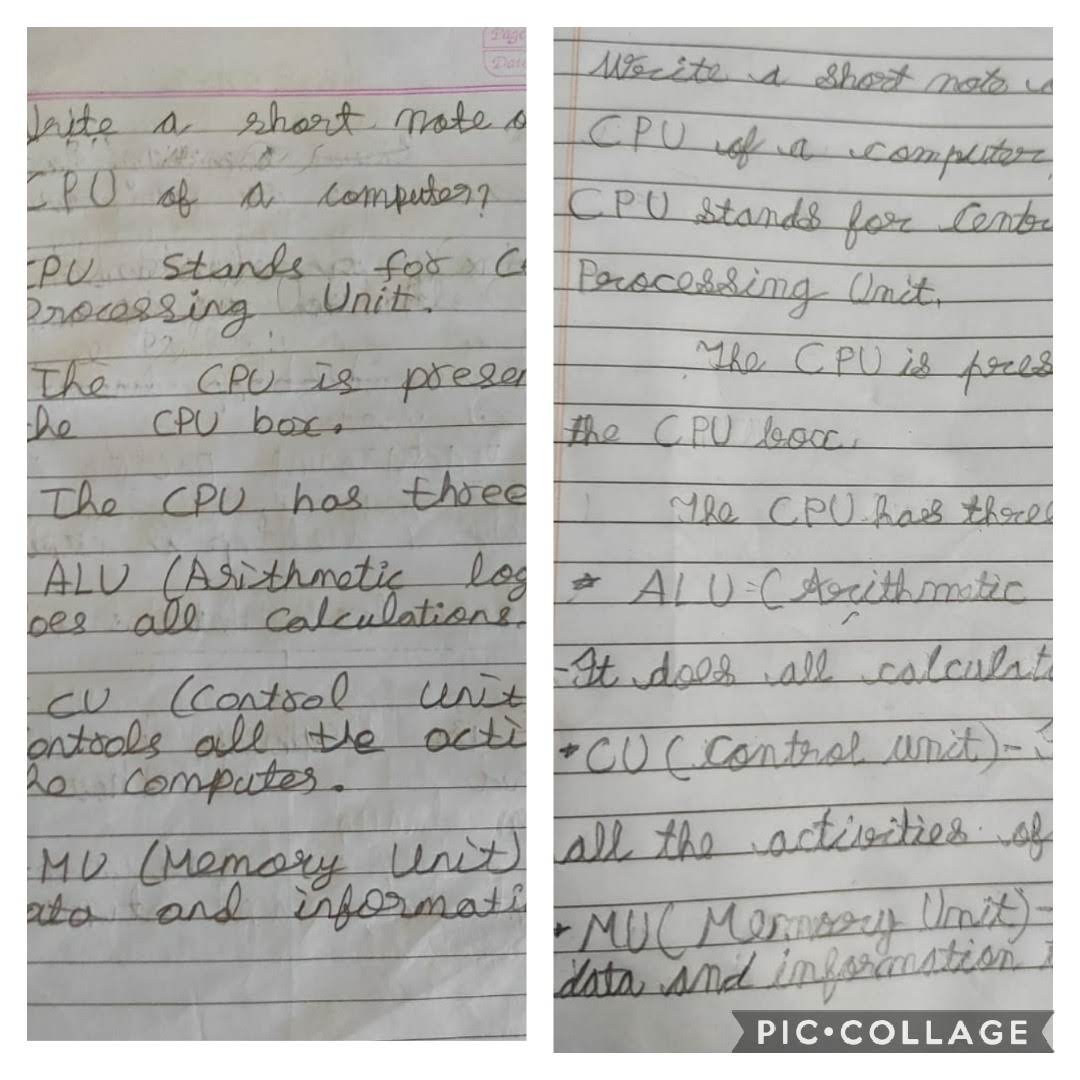 Page
Date
Write a short note o
CPU of a computer?
CPU stands for C
Processing Unit.
The CPU is presen
he CPU box.
The CPU has three
ALU (Arithmetic log
oes all calculations.
CU (Control Unit
ontrols all the acti
he computer.
MU (Memory Unit)
ata and informati
Write a short note o
CPU of a computer
CPU stands for Centr
Processing Unit.
The CPU is pres
the CPU box.
The CPU has three
* ALU = (Arithmatic
- It does all calculat
* CU (Control unit) -
all the activities of
* MU (Memory Unit) -
data and information
PIC•COLLAGE